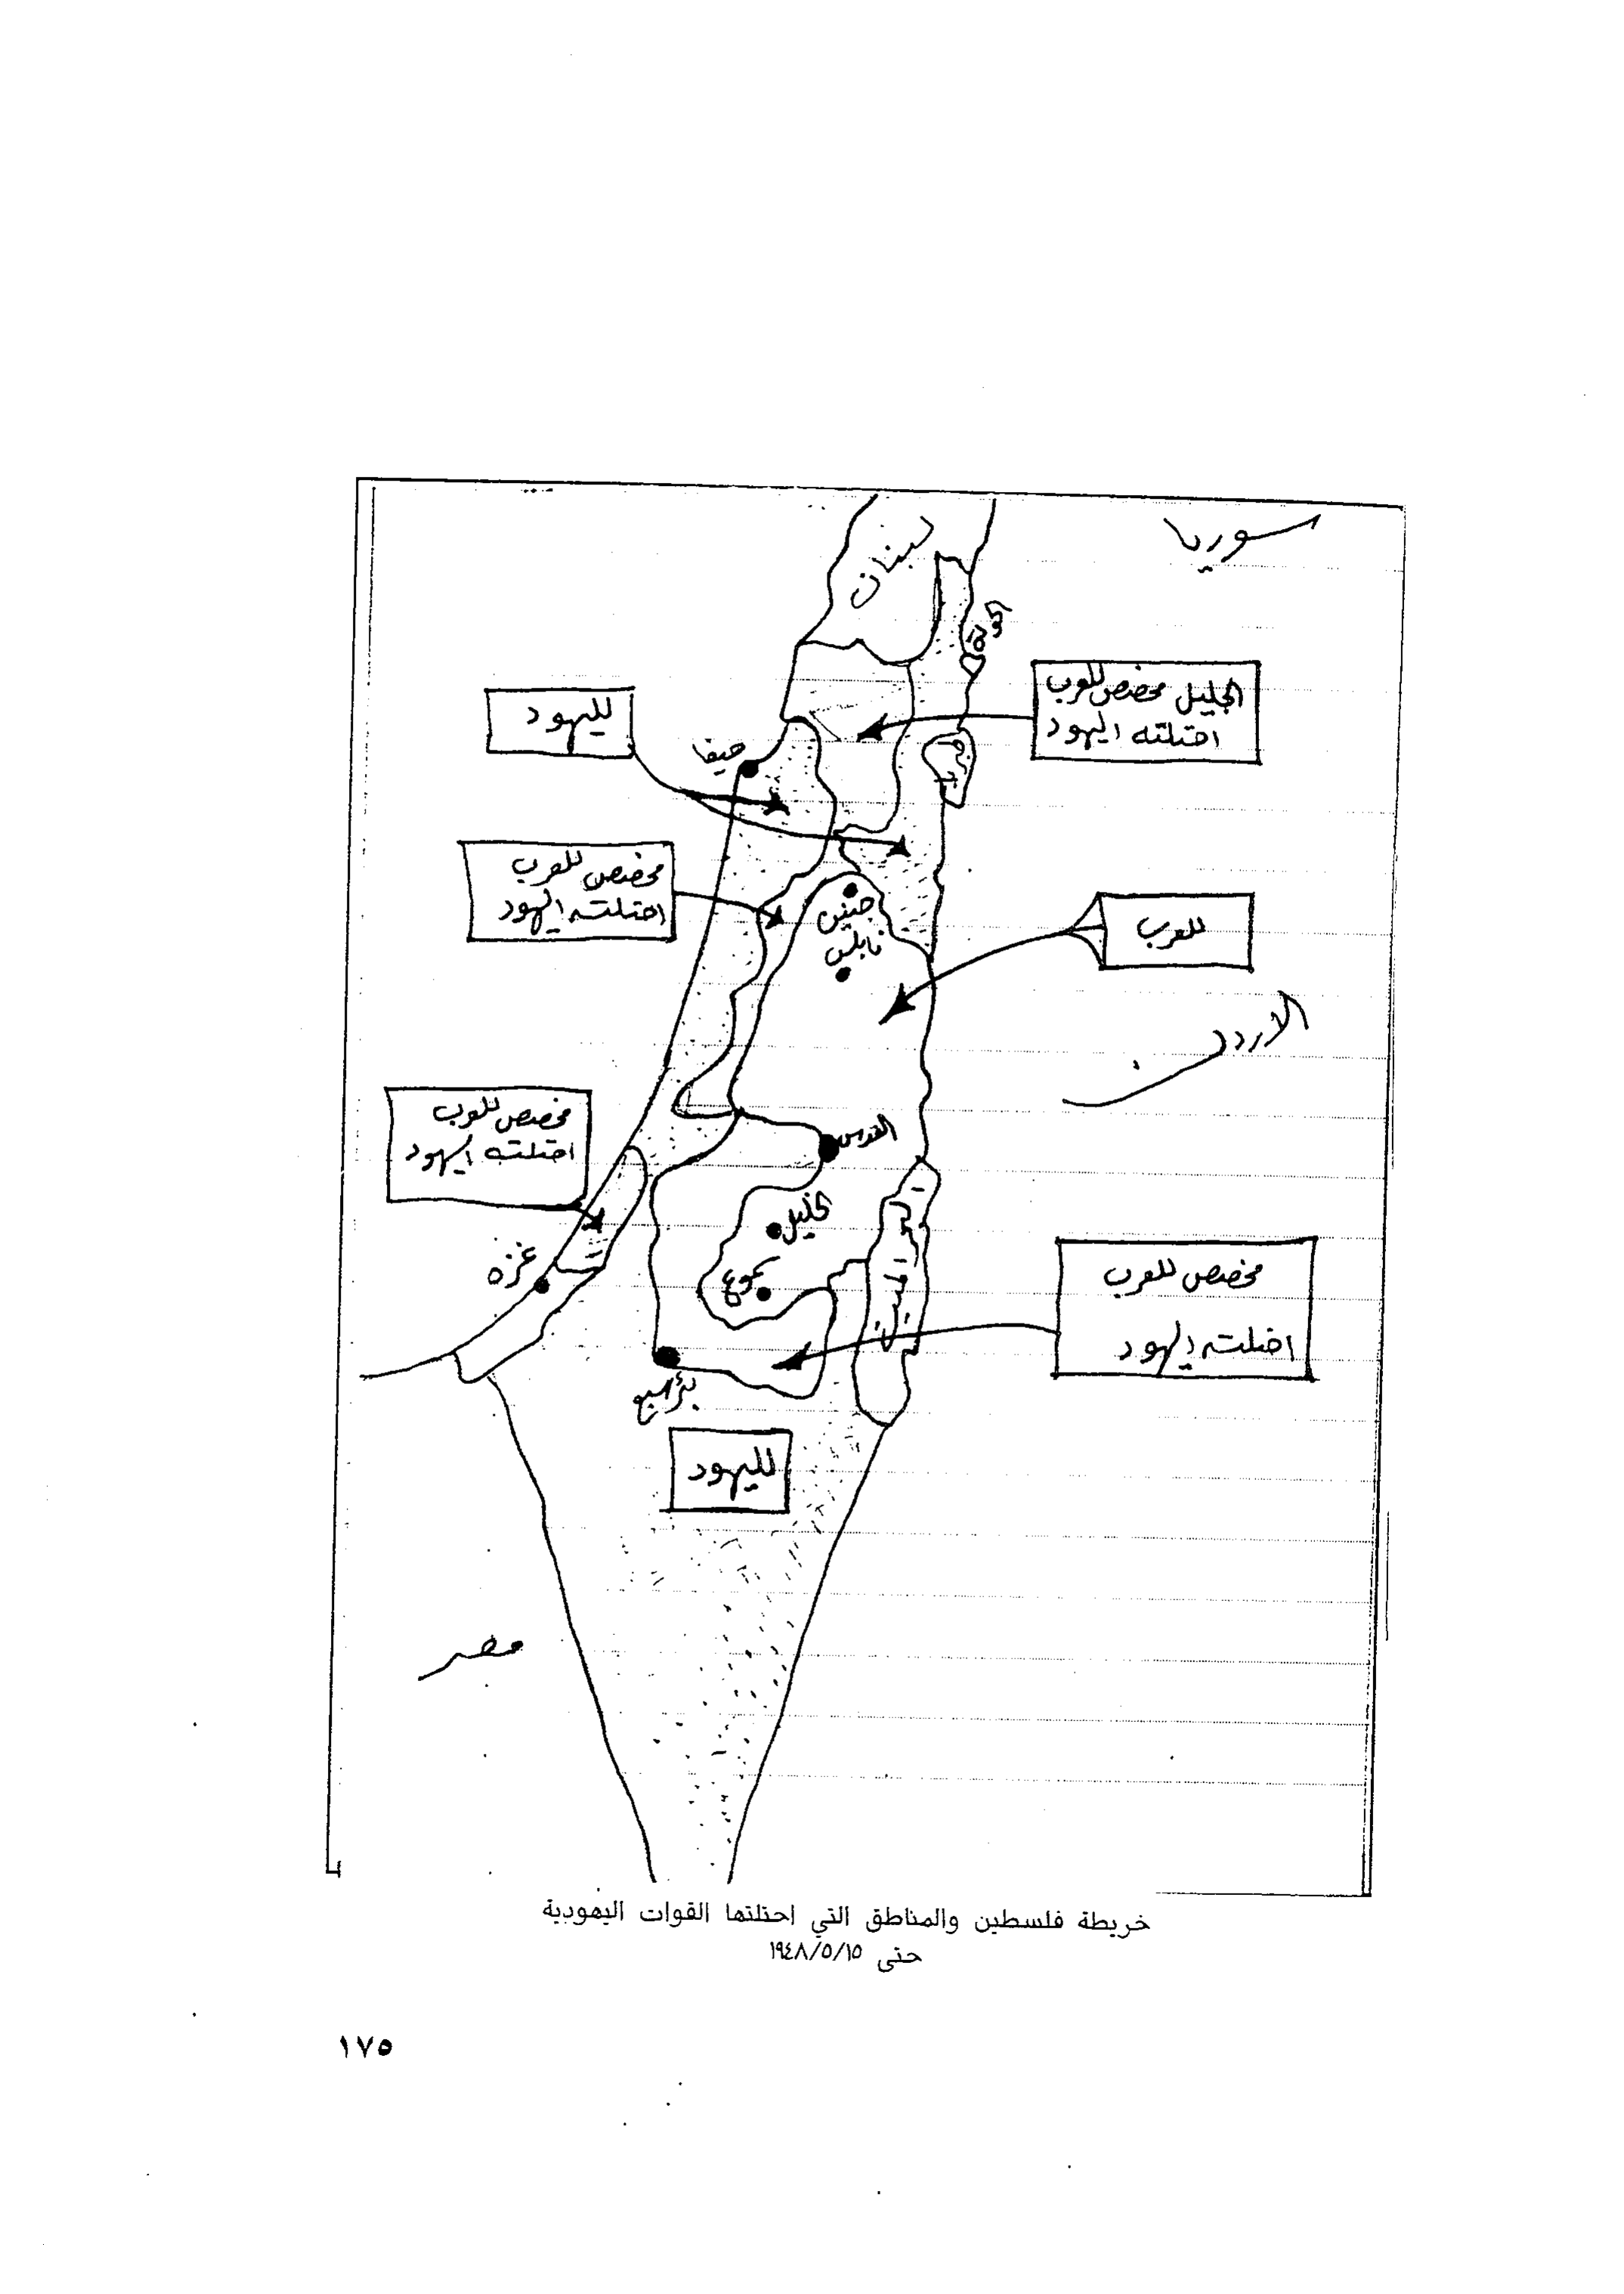 سوريا
لبنان
الحولة
الجليل مخصص للعرب
احتلته اليهود
لليهود
حيفا
مخصص للعرب
احتلته اليهود
جنين
نابلس
للعرب
الاردن
مخصص للعرب
احتلته اليهود
القدس
الخليل
غزه
مخصص للعرب
احتلته اليهود
بئر السبع
لليهود
مصر
خريطة فلسطين والمناطق التي احتلتها القوات اليهودية
حتى ١٩٤٨/٥/١٥
١٧٥